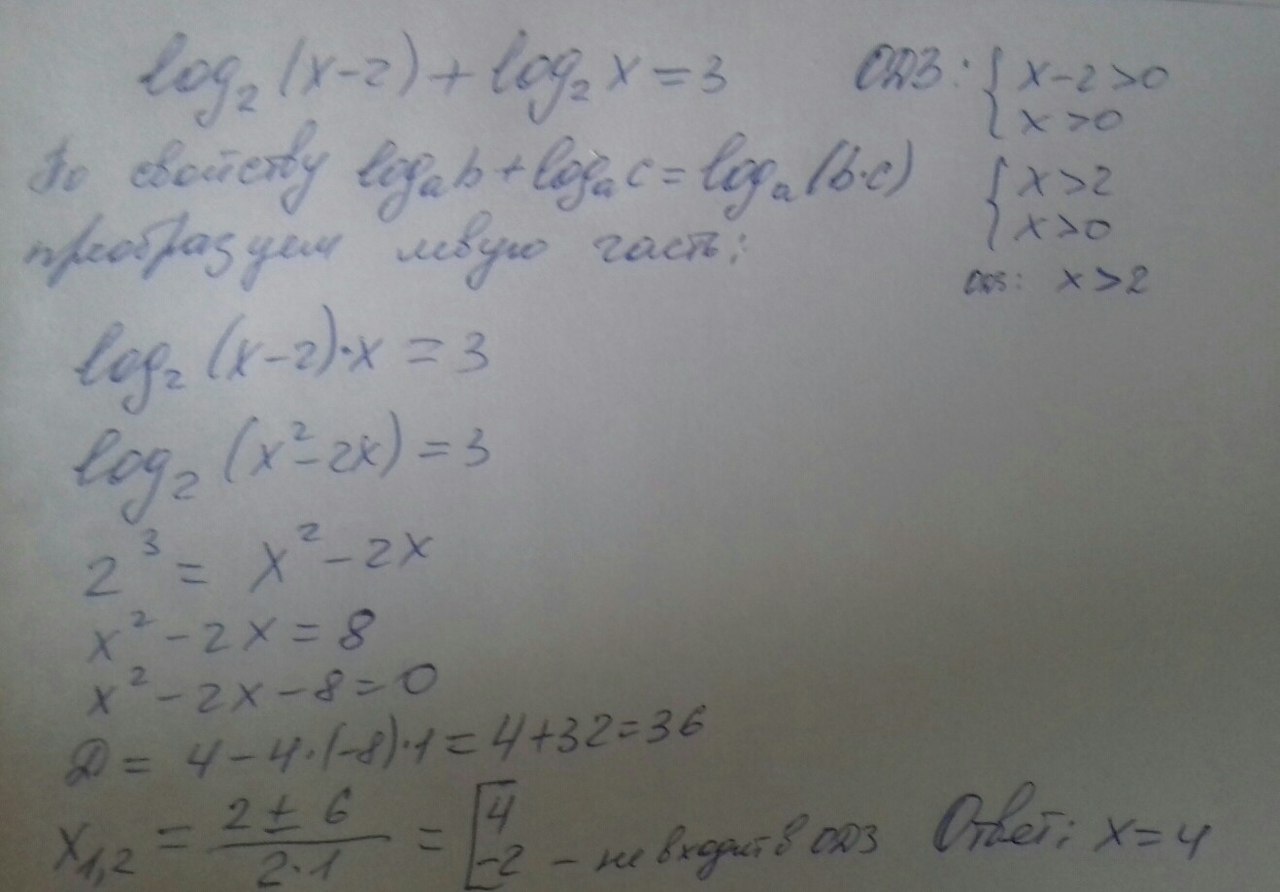 log₂(x-2)+log₂x=3
ОДЗ: { x-2>0
x>0
{ x>2
x>0
ОДЗ: x>2
По свойству logₐb+logₐc=logₐ(b·c)
преобразуем левую часть:
log₂(x-2)·x=3
log₂(x²-2x)=3
2³=x²-2x
x²-2x=8
x²-2x-8=0
D=4-4·(-8)·1=4+32=36
x₁,₂ = (2±6)/(2·1) = [ 4
-2 - не входит в ОДЗ
Ответ: x=4